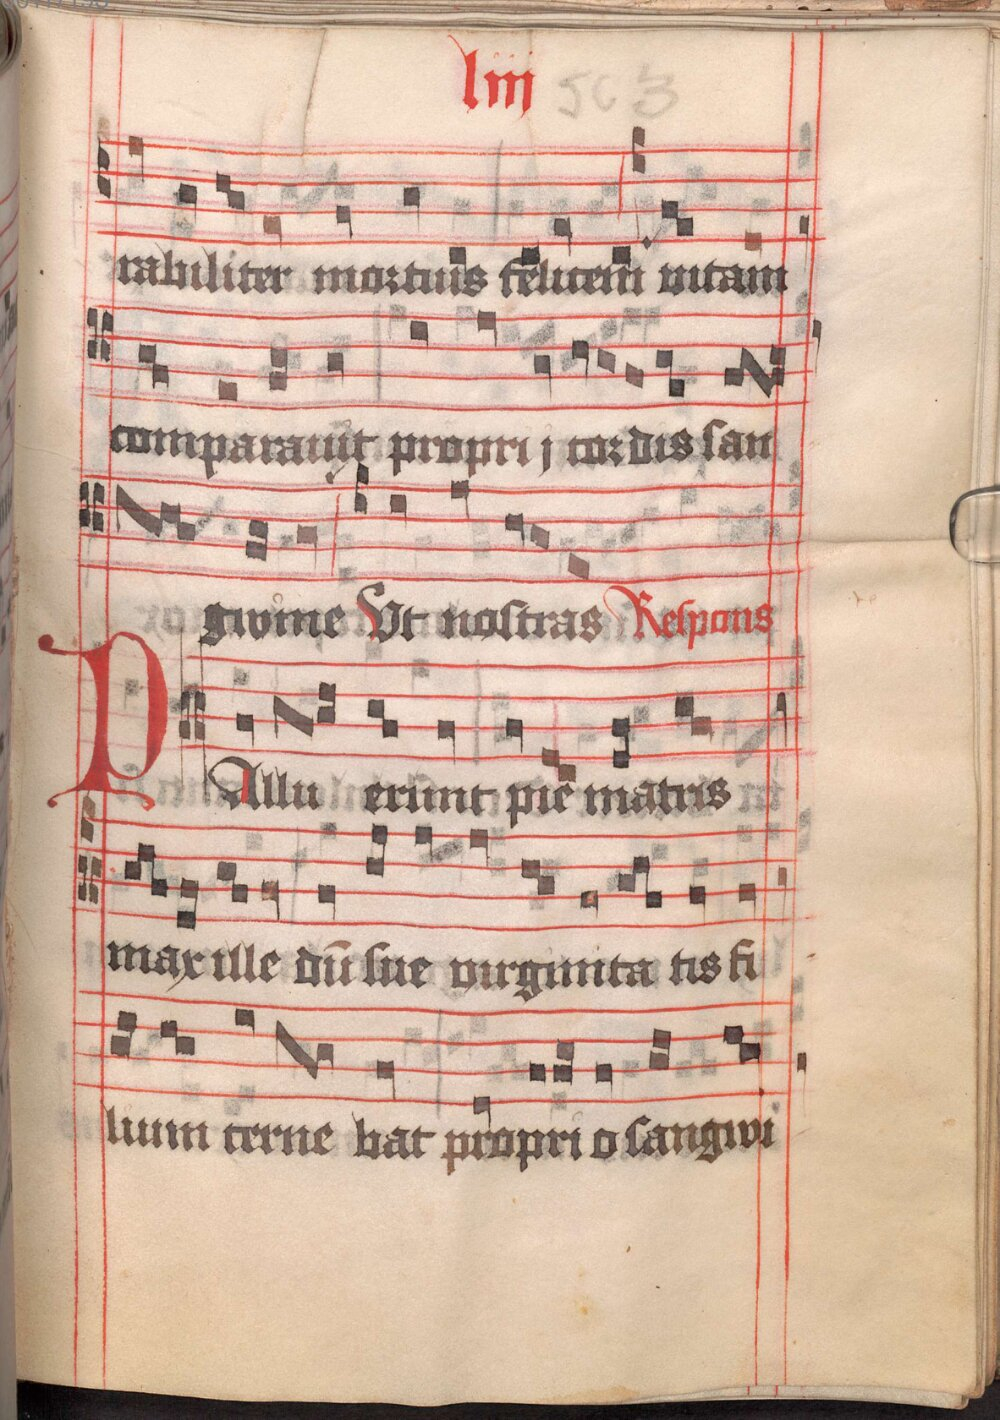 liij 503
rabiliter mortuus felicem vitam
comparauit proprij cordis san
gwine Vt nostras Respons
PAllu erunt pie matris
maxille dū sue virginita tis fi
lium cerne bat propri o sangwi